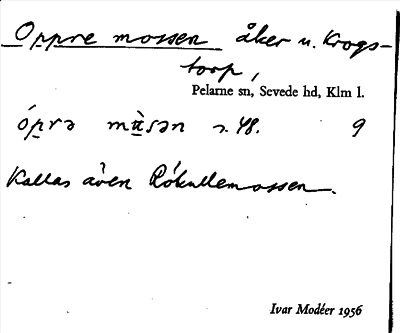 Oppre mossen åker u. Krogs-
torp,
Pelarne sn, Sevede hd, Klm l.
óp̲rə mùsən s. 48. 9
Kallas även Rókullemossen.
Ivar Modéer 1956